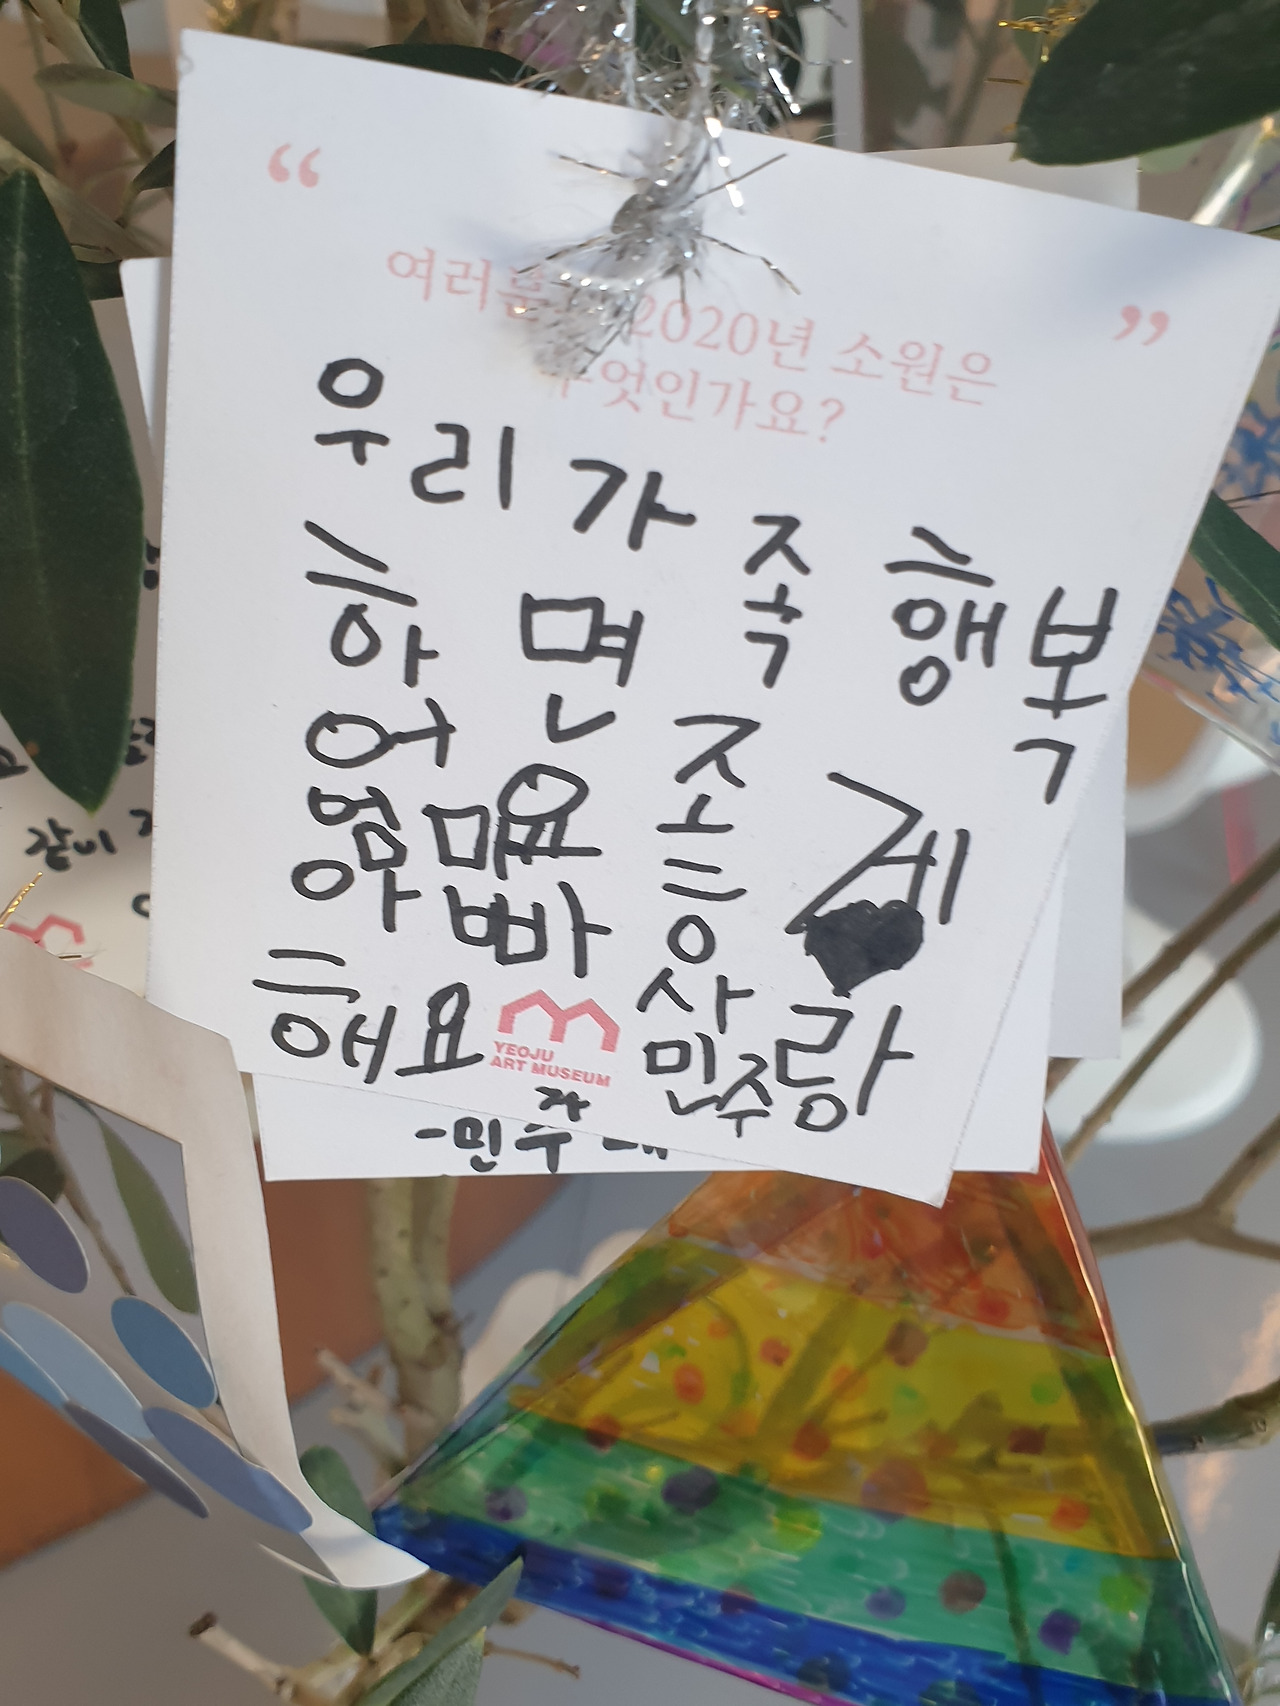 “ ”
여러분 2020년 소원은
무엇인가요?
우리 가족 행복
하면 좋게
어요
엄마
아빠 사랑
해요 민주
YEOJU
ART MUSEUM
-민주
같이